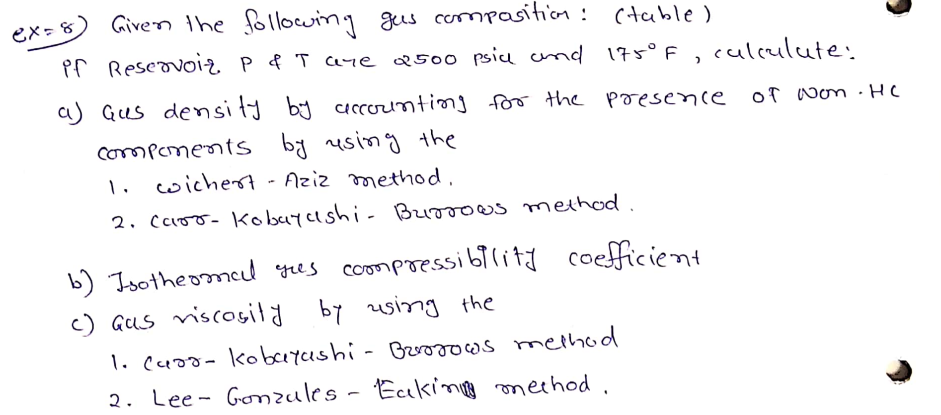 ex=8) Given the following gas composition : (table)
If Reservoir P & T are 2500 psia and 175° F , calculate:
a) Gas density by accounting for the presence of Non-HC
components by using the
1. wichert - Aziz method.
2. Carr- Kobayashi - Burrows method.
b) Isothermal gas compressibility coefficient
c) Gas viscosity by using the
1. Carr- Kobayashi - Burrows method
2. Lee - Gonzales - Eakin method.